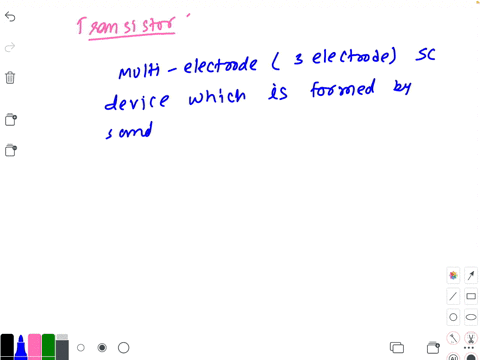 Transistor
multi-electrode ( 3 electrode) SC
device which is formed by
sand